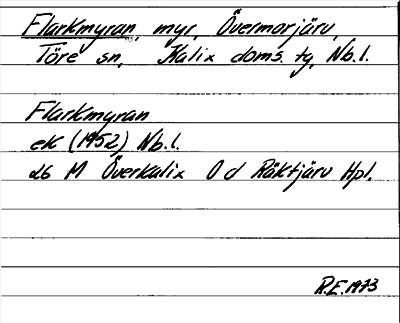 Flarkmyran, myr, Övermorjärv,
Töre sn, Kalix doms. tg, Nb.l.
Flarkmyran
ek (1952) Nb.l.
26 M Överkalix O d Räktjärv Hpl.
R.E. 1973